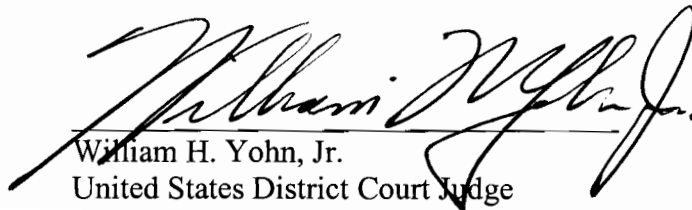 William H. Yohn, Jr.
William H. Yohn, Jr.
United States District Court Judge